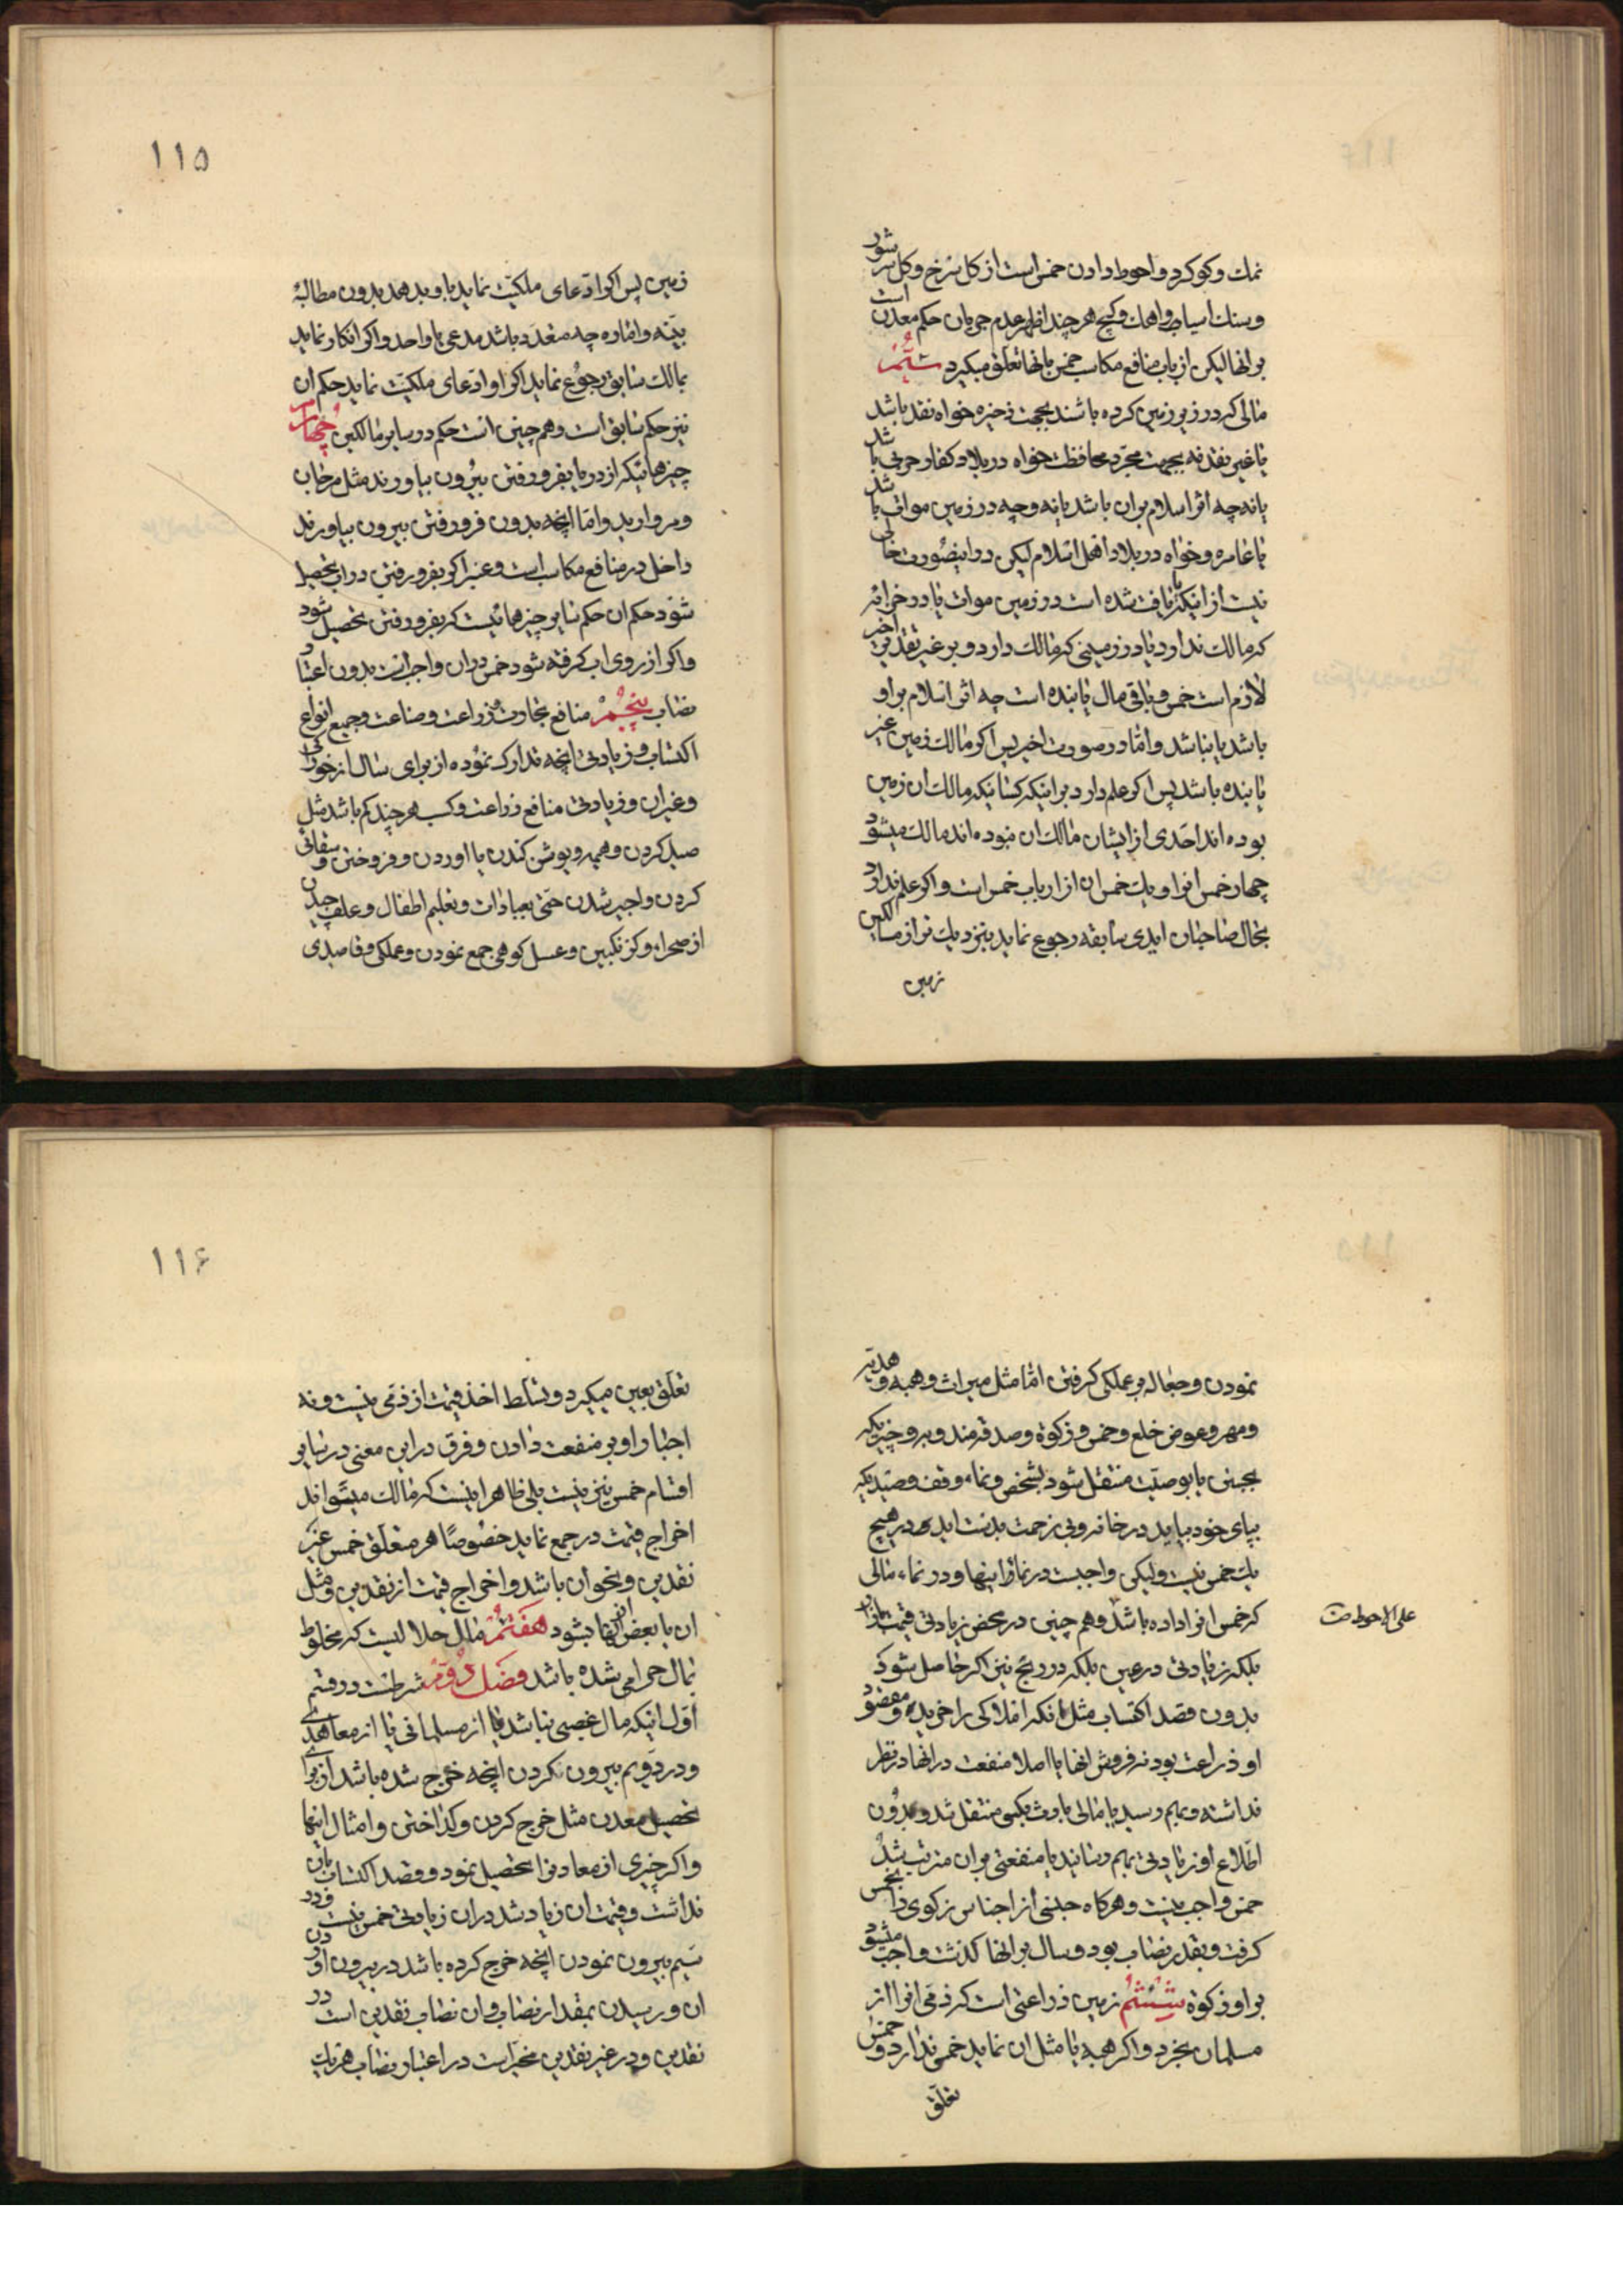 نمك وكوكرد واحوط دادن خمس است از كل سرخ وكل سر شور
وسنك اسيا واهك وكچ هر چند اظهر عدم جريان حكم معدن است
بر انها ليكن از باب منافع مكاسب خمس بانها تعلق ميكيرد سيّم
مالى كه در زير زمين كرده باشند بجهت ذخيره خواه نقد باشد
يا غير نقد نه بجهت مجرّد محافظت خواه در بلاد كفار حربى باشد
يا نه چه اثر اسلام بر ان باشد يا نه وچه در زمين موات باشد
يا عامره وخواه در بلاد اهل اسلام ليكن در اينصورت خالى
نيست از اينكه يا يافت شده است در زمين موات يا در خرابه
كه مالك ندارد يا در زمينى كه مالك دارد وبر غير تقدير اخير
لازم است خمس وباقى مال يابنده است چه اثر اسلام بر او
باشد يا نباشد وامّا در صورت اخير پس اكر مالك زمين غير
يابنده باشد پس اكر علم دارد براينكه كسانيكه مالك ان زمين
بوده اند احدى از ايشان مالك ان نبوده اند مالك ميشود
چهار خمس انرا ويك خمس ان از ارباب خمس است واكر علم ندارد
بحال صاحبان ايدى سابقه رجوع نمايد بنزديك تر از مالكين
زمين
١١٥
زمين پس اكر ادّعاى ملكيّت نمايد باو بدهد بدون مطالبه
بيّنه واماره چه متعدّد باشد مدعى يا واحد واكر انكار نمايد
بمالك سابق رجوع نمايد اكر او ادّعاى ملكيّت نمايد حكم ان
نيز حكم سابق است وهم چنين است حكم در ساير مالكين چهارم
چيزهائيكه از دريا بفرو رفتن بيرون بياورند مثل مرجان
ومرواريد وامّا انچه بدون فرو رفتن بيرون بياورند
داخل در منافع مكاسب است وعنبر اكر بفرو رفتن در اب تحصيل
شود حكم ان حكم ساير چيزهائيست كه بفرو رفتن تحصيل شود
واكر از روى اب كرفته شود خمس دران واجب است بدون اعتبار
نصاب پنجم منافع تجارت وزراعت وصناعت وجميع انواع
اكتساب وزيادتى انچه تدارك نموده از براى سال از خوراكى
وغير ان وزيادتى منافع زراعت وكسب هر چند كم باشد مثل
صيد كردن وهيمه وبوشن كندن يا اوردن وفروختن وسقائى
كردن واجير شدن حتى بعبادات وتعليم اطفال وعلف چيدن
از صحرا وكزنكبين وعسل كوهى جمع نمودن وعملكى وقاصدى
نمودن وجعاله بر عملكى كرفتن امّا مثل ميراث وهبه وهديّه
ومهر وعوض خلع وخمس وزكوة وصدقه مندوبه وچيزيكه
بوصيّت منتقل شود بشخص ونماء وقف وصيديكه
بپاى خود بيايد در خانه وبى زحمت بدست ايد در هيچ
يك خمس نيست وليكن واجبست در نماء اينها ودر نماء مالى
كه خمس انرا داده باشد وهم چنين در محض زيادتى قيمت بازار
علی الاحوط
بلكه زيادتى در عين بلكه در ربح نيز اكر حاصل شود
بدون قصد اكتساب مثل انكه املاكى را خريده ومقصود
او زراعت بود نه فروش انها يا اصلا منفعت در انها در نظر
نداشته وبهم رسيد يا مالى بارث بكسى منتقل شد وبدون
اطّلاع او زيادتى بهم رسانيد يا منفعتى بر ان مترتب شد
خمس واجب نيست وهركاه جنسى از اجناس زكوى را بخمس
كرفت وبقدر نصاب بود وسال بر انها كذشت واجب ميشود
بر او زكوة ششم زمين زراعتى است كه ذمّى انرا از
مسلمان بخرد واكر هبه يا مثل ان نمايد خمس ندارد وخمس
تعلّق
١١٦
تعلّق بعين ميكيرد وتسلط اخذ قيمت از ذمّى نيست ونه
اجبار او بر منفعت دادن وفرق در اين معنى در ساير
اقسام خمس نيز نيست بلى ظاهر اينست كه مالك ميتواند
اخراج قيمت در جمع نمايد خصوصًا هر متعلّق خمس غير
نقدين ونحو ان باشد واخراج قيمت از نقدين ومثل
ان يا بعض از انها بشود هفتم مال حلاليست كه مخلوط
بمال حرامى شده باشد فصل دوّم شرطست در قسم
اوّل اينكه مال غصبى نباشد يا از مسلمانى يا از معاهدى
ودر دويم بيرون نكردن انچه خرج شده باشد از براى
تحصيل معدن مثل خرج كردن وكداختن وامثال اينها
واكر چيزى از معادن را تحصيل نمود وقصد اكتساب بان
نداشت وقيمت ان زياد شد دران زيادتى خمس نيست ودر
سيّم بيرون نمودن انچه خرج كرده باشد در بيرون اوردن
ان ورسيدن بمقدار نصاب وان نصاب نقدين است در
نقدين ودر غير نقدين مخيّر است در اعتبار نصاب هريك